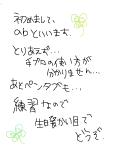 初めまして、
abといいます。
とりあえず…
ギプロの使い方が
分かりません…
あとペンタブも…
練習なので
生暖かい目で
どうぞ。